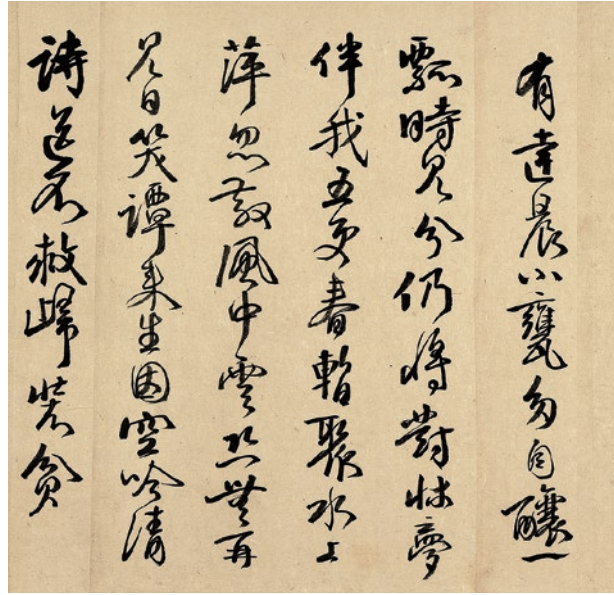 有達晨小甕多自釀一
瓢時見分仍將對牀夢
伴我五更春暫聚水上
萍忽散風中雲恐無再
見日笑譚來生因空吟清
詩送不救歸裝貧